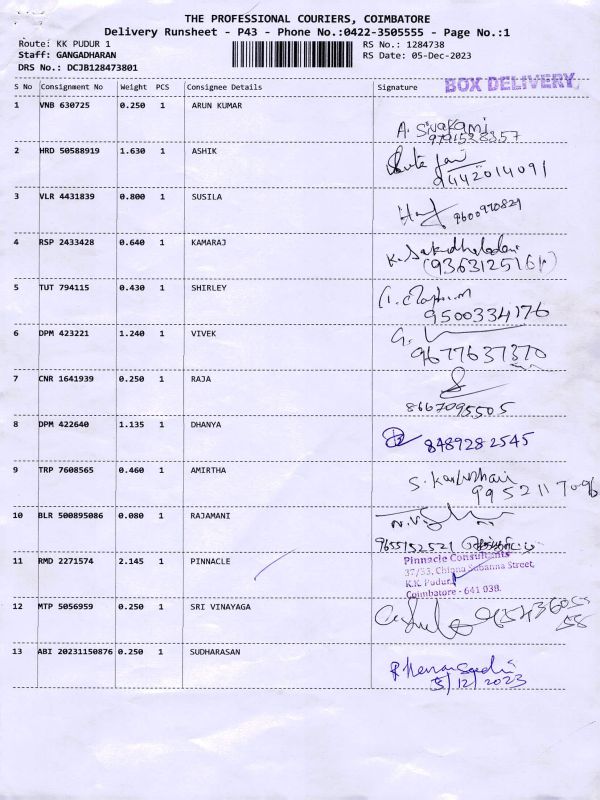 THE PROFESSIONAL COURIERS, COIMBATORE
Delivery Runsheet - P43 - Phone No.:0422-3505555 - Page No.:1
Route: KK PUDUR 1 RS No.: 1284738
Staff: GANGADHARAN RS Date: 05-Dec-2023
DRS No.: DCJB128473801
BOX DELIVERY
S No Consignment No Weight PCS Consignee Details Signature
1 VNB 630725 0.250 1 ARUN KUMAR
A. Sivakami
9791528357
2 HRD 50588919 1.630 1 ASHIK
9442014091
3 VLR 4431839 0.800 1 SUSILA
9600970829
4 RSP 2433428 0.640 1 KAMARAJ
(9363125161)
5 TUT 794115 0.430 1 SHIRLEY
9500334176
6 DPM 423221 1.240 1 VIVEK
9677637370
7 CNR 1641939 0.250 1 RAJA
8667095505
8 DPM 422640 1.135 1 DHANYA
8489282545
9 TRP 7608565 0.460 1 AMIRTHA
9952117096
10 BLR 500895086 0.080 1 RAJAMANI
9655152521
11 RMD 2271574 2.145 1 PINNACLE
Pinnacle Consultants
37/35, Chinna Subanna Street,
K.K. Pudur,
Coimbatore - 641 038.
12 MTP 5056959 0.250 1 SRI VINAYAGA
13 ABI 20231150876 0.250 1 SUDHARASAN
5/12/2023